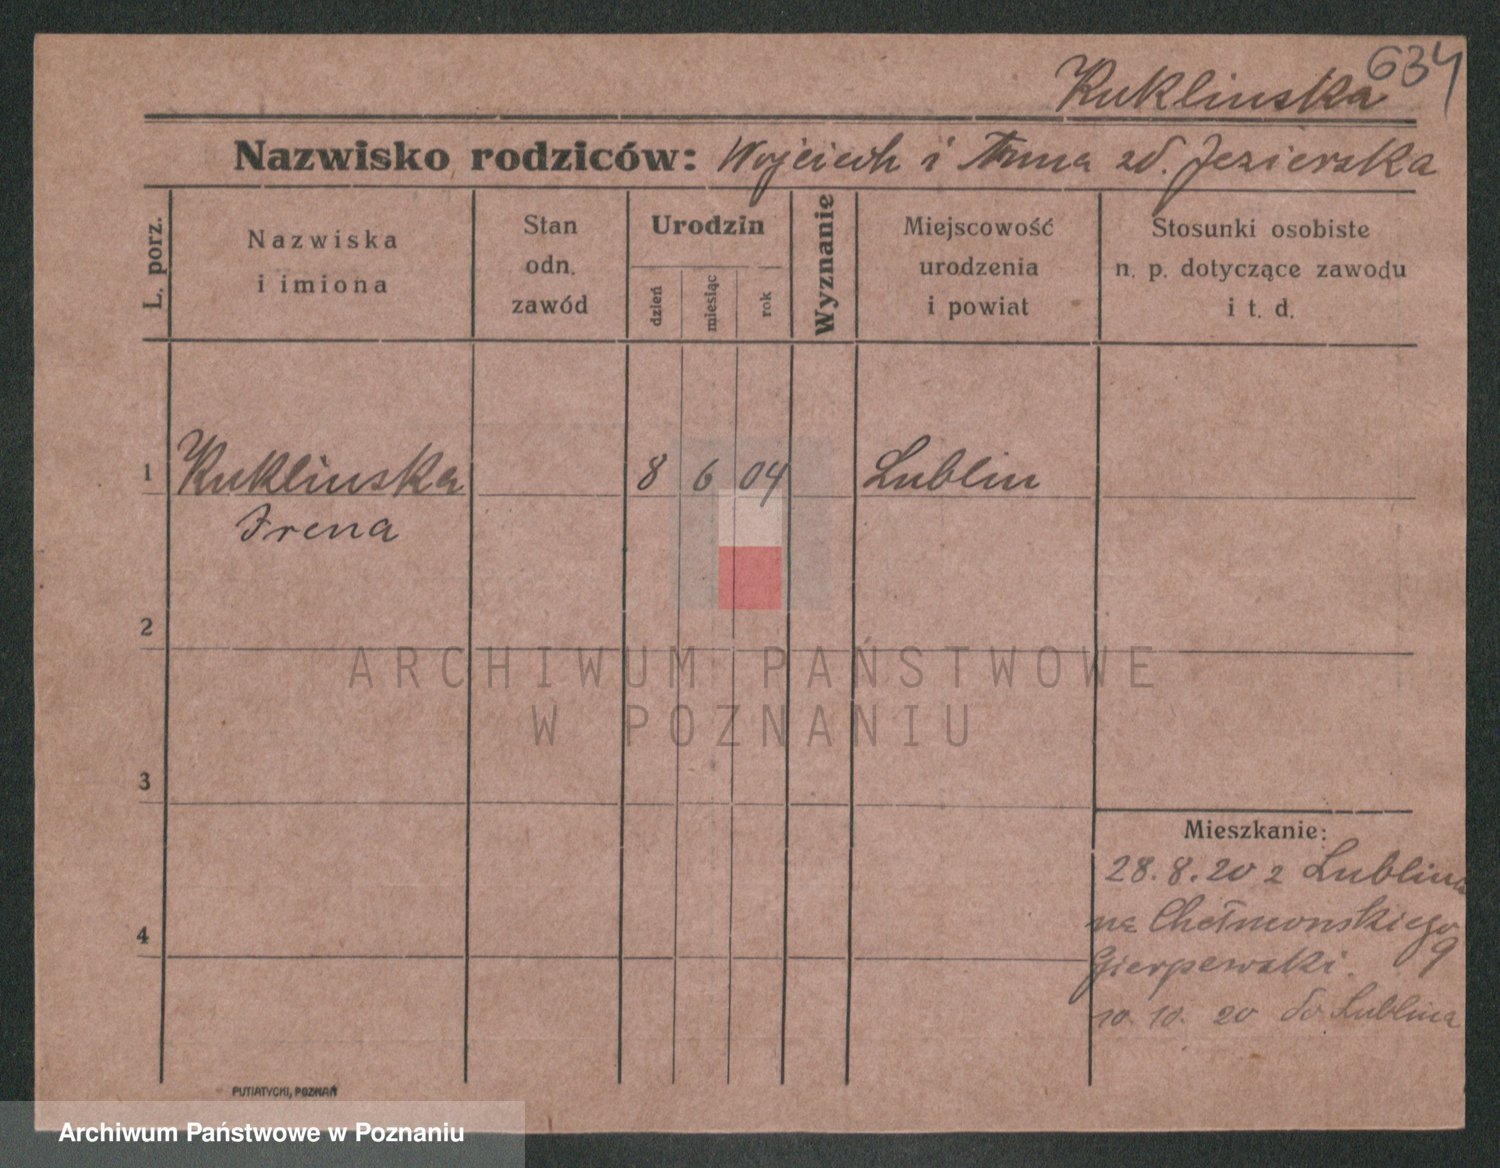 634
Kuklinska
Nazwisko rodziców: Wojciech i Anna zd. Jezierska
L. porz.
Nazwiska
i imiona
Stan
odn.
zawód
Urodzin
dzień
miesiąc
rok
Wyznanie
Miejscowość
urodzenia
i powiat
Stosunki osobiste
n. p. dotyczące zawodu
i t. d.
1 Kuklinska 8 6 04 Lublin
Irena
2
ARCHIWUM PAŃSTWOWE
W POZNANIU
3
Mieszkanie:
28.8.20 z Lublina
na Chełmonskiego
9
4
10. 10. 20 do Lublina
PUTIATYCKI, POZNAŃ
Archiwum Państwowe w Poznaniu